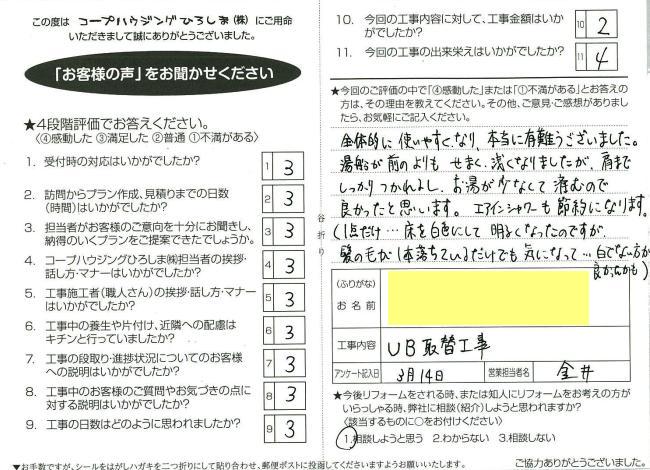 この度は コープハウジングひろしま(株) にご用命
いただきまして誠にありがとうございました。
「お客様の声」をお聞かせください
★4段階評価でお答えください。
〈④感動した ③満足した ②普通 ①不満がある〉
1. 受付時の対応はいかがでしたか? 1 3
2. 訪問からプラン作成、見積りまでの日数
(時間)はいかがでしたか? 2 3
3. 担当者がお客様のご意向を十分にお聞きし、
納得のいくプランをご提案できたでしょうか。 3 3
4. コープハウジングひろしま㈱担当者の挨拶・
話し方・マナーはいかがでしたか? 4 3
5. 工事施工者(職人さん)の挨拶・話し方・マナー
はいかがでしたか? 5 3
6. 工事中の養生や片付け、近隣への配慮は
キチンと行っていましたか? 6 3
7. 工事の段取り・進捗状況についてのお客様
への説明はいかがでしたか? 7 3
8. 工事中のお客様のご質問やお気づきの点に
対する説明はいかがでしたか? 8 3
9. 工事の日数はどのように思われましたか? 9 3
▼お手数ですが、シールをはがしハガキを二つ折りにして貼り合わせ、郵便ポストに投函してくださいますようお願いいたします。
谷折り
10. 今回の工事内容に対して、工事金額はいか
がでしたか? 10 2
11. 今回の工事の出来栄えはいかがでしたか? 11 4
★今回のご評価の中で「④感動した」または「①不満がある」とお答え
の方は、その理由を教えてください。その他、ご意見・ご感想がありまし
たら、お気軽にご記入ください。
全体的に使いやすくなり、本当に有難うございました。
湯船が前のよりもせまく、浅くなりましたが、肩まで
しっかりつかれるし、お湯が少なくて済むので
良かったと思います。エアインシャワーも節約になります。
(1点だけ…床を白色にして明るくなったのですが
髪の毛が1本落ちているだけでも気になって…白でない方が
良かったかも)
(ふりがな)
お名前
工事内容 UB取替工事
アンケート記入日 3月14日 営業担当者名 金井
★今後リフォームをされる時、または知人にリフォームをお考えの方が
いらっしゃる時、弊社に相談(紹介)しようと思われますか?
〈該当するものに○をお付けください〉
1.相談しようと思う 2.わからない 3.相談しない
ご協力ありがとうございました。